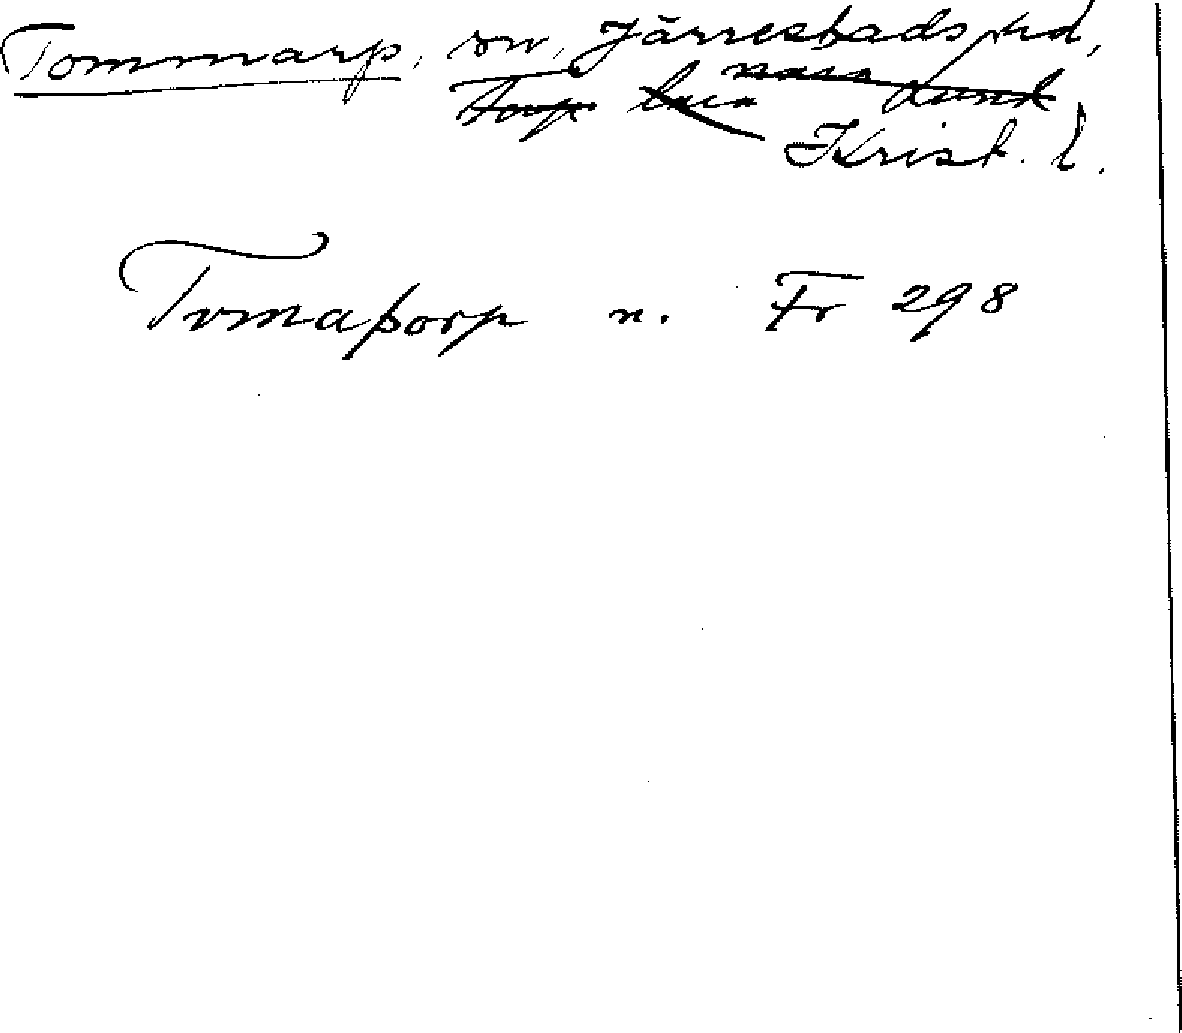 Tommarp, sn, Järrestads hd,
Krist. l.
Tvmaþorp n. Fr 298